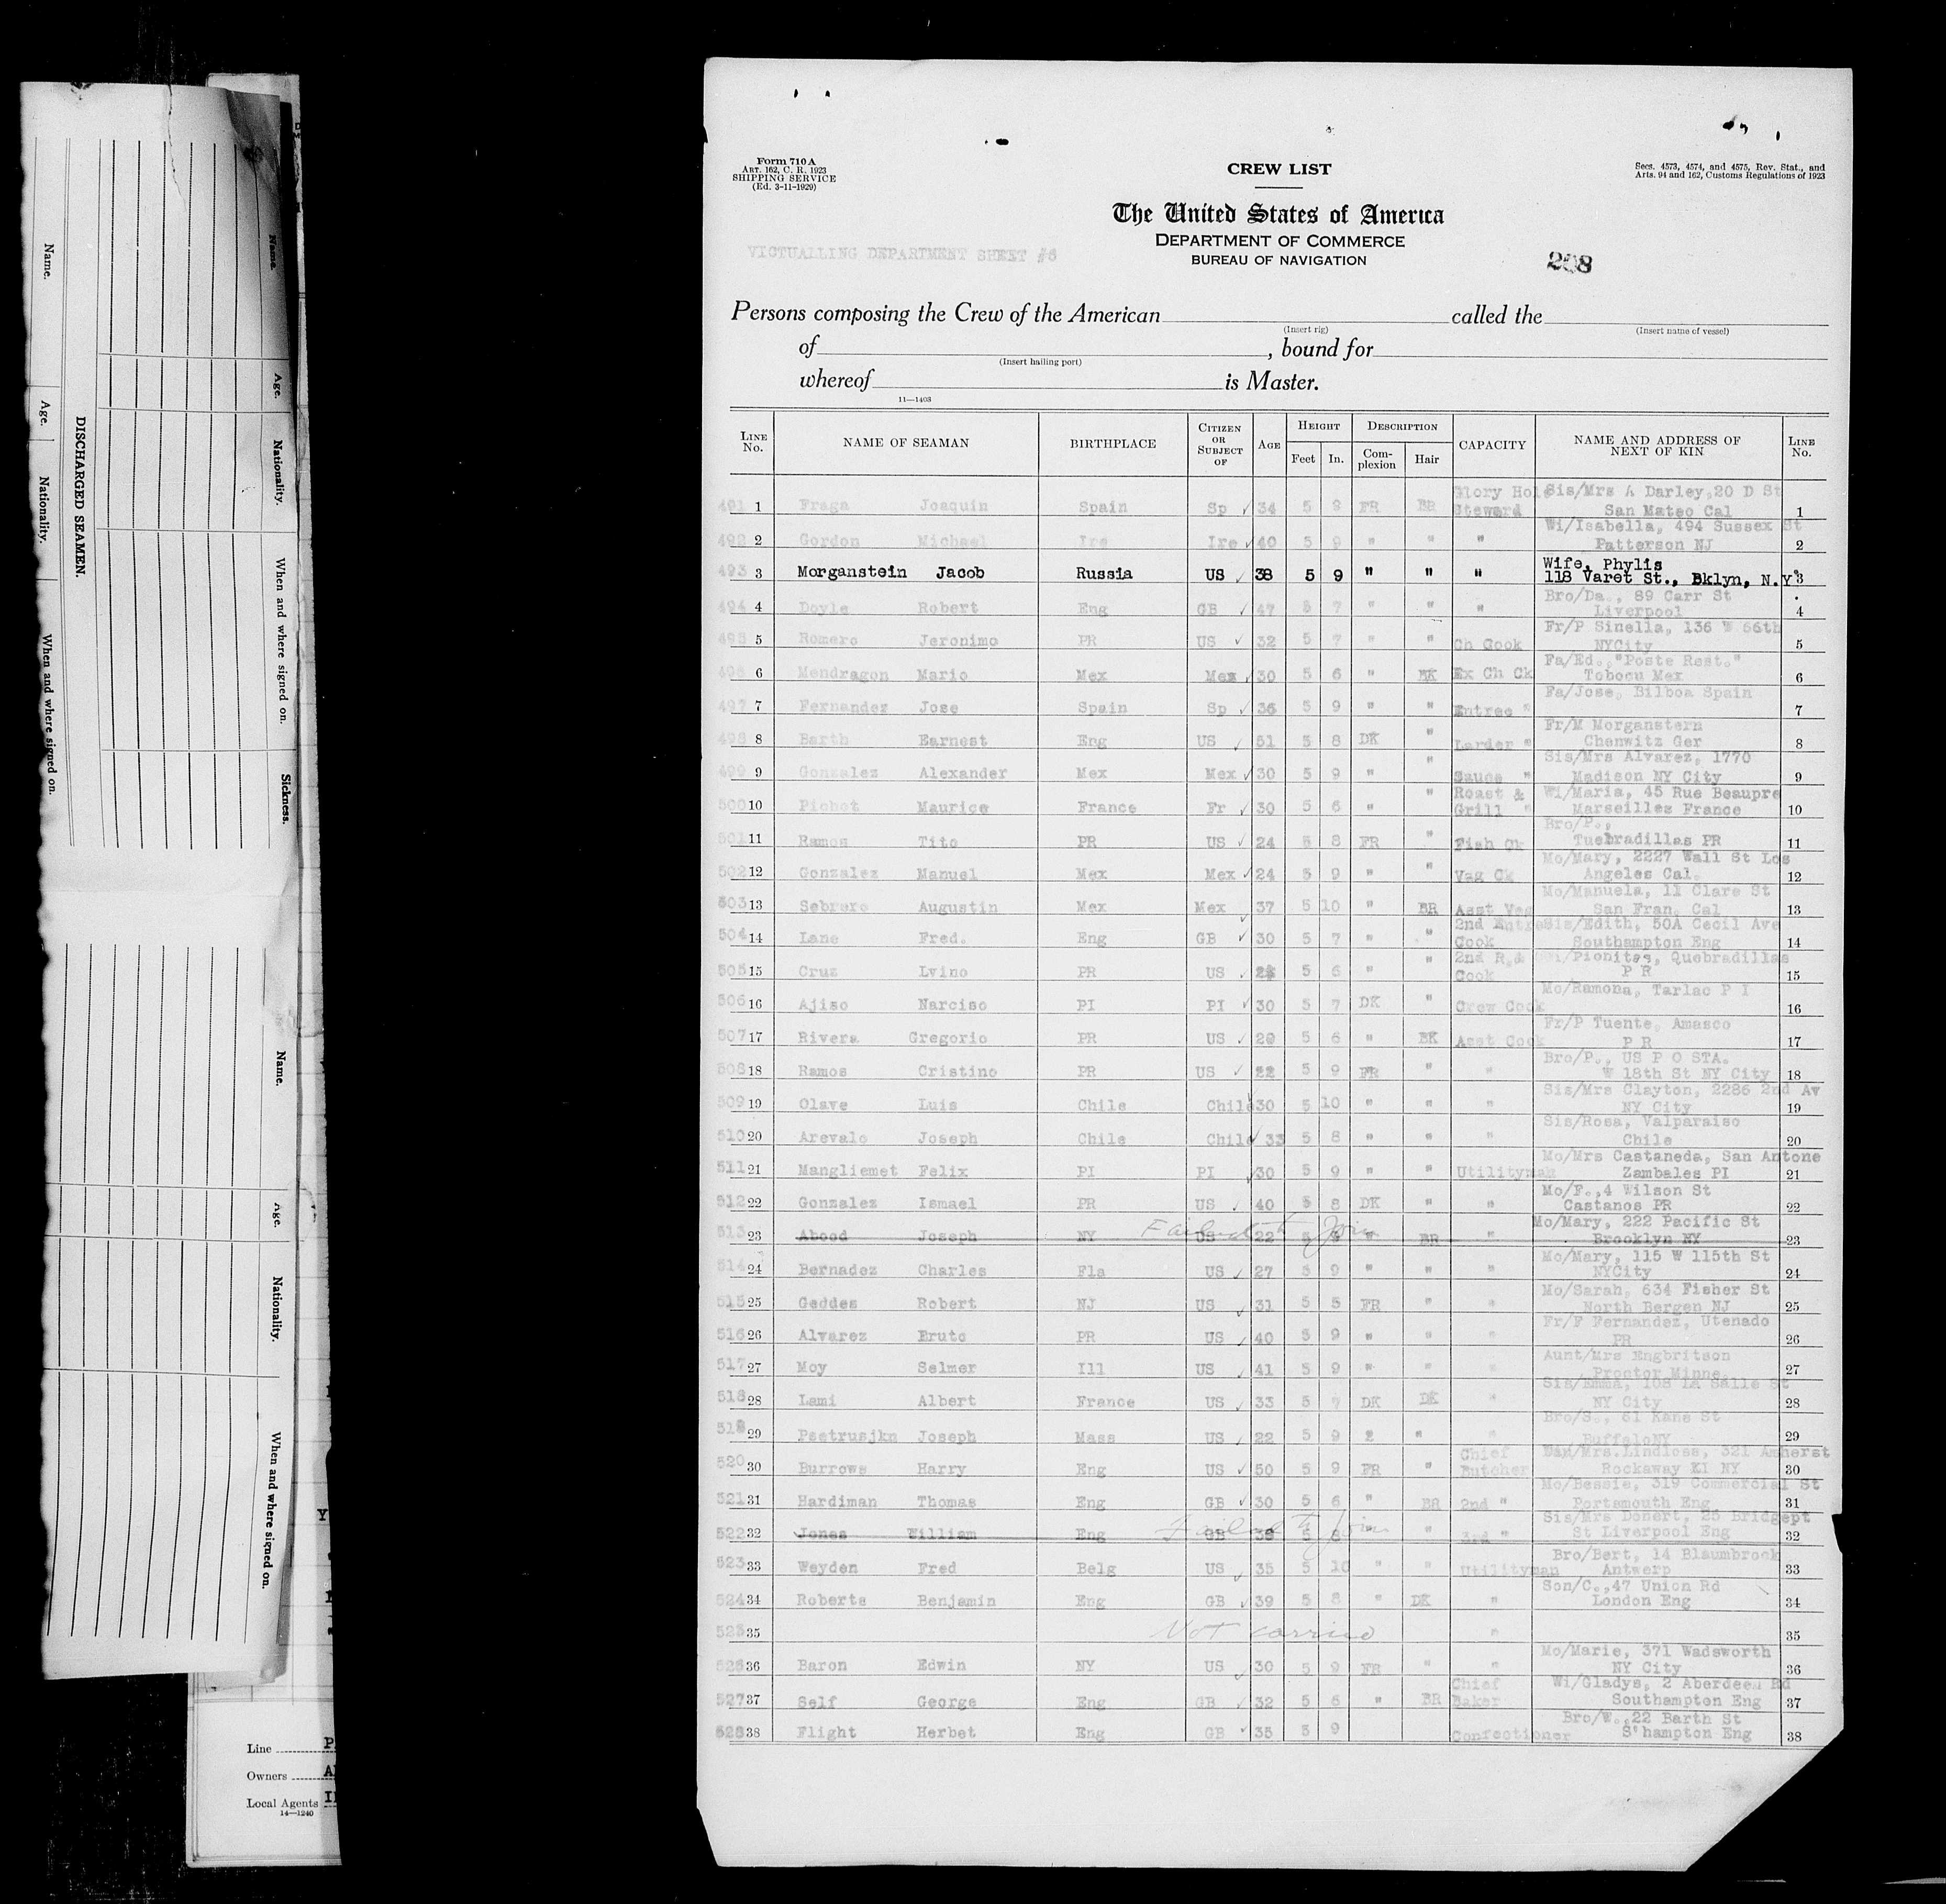 Name.
Age.
Nationality.
When and where signed on.
DISCHARGED SEAMEN.
Name.
Age.
Nationality.
When and where signed on.
Sickness.
Name.
Age.
Nationality.
When and where signed on.
Line
Owners
Local Agents
14—1240
Form 710 A
ART. 162, C. R. 1923
SHIPPING SERVICE
(Ed. 3-11-1929)
CREW LIST
Secs. 4573, 4574, and 4575, Rev. Stat., and
Arts. 94 and 162, Customs Regulations of 1923
The United States of America
DEPARTMENT OF COMMERCE
BUREAU OF NAVIGATION
VICTUALLING DEPARTMENT SHEET #6
Persons composing the Crew of the American called the
(Insert rig) (Insert name of vessel)
of , bound for
(Insert hailing port)
whereof is Master.
11—1408
LINE No. NAME OF SEAMAN BIRTHPLACE CITIZEN OR SUBJECT OF AGE HEIGHT Feet In. DESCRIPTION Com-plexion Hair CAPACITY NAME AND ADDRESS OF NEXT OF KIN LINE No.
491 1 Fraga Joaquin Spain Sp 34 5 9 FR BR Glory Hole Steward Sis/Mrs A Darley,20 D St San Mateo Cal 1
492 2 Gordon Michael Ire Ire 40 5 9 " " " Wi/Isabella, 494 Sussex St Patterson NJ 2
493 3 Morganstein Jacob Russia US 38 5 9 " " " Wife, Phylis 118 Varet St., Bklyn, N.Y. 3
494 4 Doyle Robert Eng GB 47 5 7 " " " Bro/Da., 89 Carr St Liverpool 4
495 5 Romero Jeronimo PR US 32 5 7 " " Ch Cook Fr/P Sinella, 136 W 66th NYCity 5
496 6 Mendragon Mario Mex Mex 30 5 6 " BK Ex Ch Ck Fa/Ed.,"Poste Rest." Tobocu Mex 6
497 7 Fernandez Jose Spain Sp 36 5 9 " " Entree " Fa/Jose, Bilboa Spain 7
498 8 Barth Earnest Eng US 51 5 8 DK " Larder " Fr/M Morganstern Chenwitz Ger 8
499 9 Gonzalez Alexander Mex Mex 30 5 9 " " Sauce " Sis/Mrs Alvarez, 1770 Madison NY City 9
500 10 Pichot Maurice France Fr 30 5 6 " " Roast & Grill " Wi/Maria, 45 Rue Beaupre Marseilles France 10
501 11 Ramos Tito PR US 24 5 8 FR " Fish Ck Bro/P., Tuebradillas PR 11
502 12 Gonzalez Manuel Mex Mex 24 5 9 " " Veg Ck Mo/Mary, 2227 Wall St Los Angeles Cal. 12
503 13 Sebrere Augustin Mex Mex 37 5 10 " BR Asst Veg Mo/Manuela, 11 Clare St San Fran. Cal 13
504 14 Lane Fred. Eng GB 30 5 7 " " 2nd Entre Cook Sis/Edith, 50A Cecil Ave Southampton Eng 14
505 15 Cruz Lvino PR US 5 6 " " 2nd R.& Cook Wi/Pionitas, Quebradillas P R 15
506 16 Ajiso Narciso PI PI 30 5 7 DK " Crew Cook Mo/Ramona, Tarlac P I 16
507 17 Rivera Gregorio PR US 29 5 6 " BK Asst Cook Fr/P Tuente, Amasco P R 17
508 18 Ramos Cristino PR US 22 5 9 FR " " Bro/P., US P O STA. W 18th St NY City 18
509 19 Olave Luis Chile Chile 30 5 10 " " " Sis/Mrs Clayton, 2286 2nd Av NY City 19
510 20 Arevalo Joseph Chile Chile 33 5 8 " " " Sis/Rosa, Valparaiso Chile 20
511 21 Mangliemet Felix PI PI 30 5 9 " " Utilityman Mo/Mrs Castaneda, San Antone Zambales PI 21
512 22 Gonzalez Ismael PR US 40 5 8 DK " " Mo/F.,4 Wilson St Castanos PR 22
513 23 Abood Joseph NY US 22 5 9 " BR " Mo/Mary, 222 Pacific St Brooklyn NY 23
Failed to Join
514 24 Bernadez Charles Fla US 27 5 9 " " " Mo/Mary, 115 W 115th St NYCity 24
515 25 Geddes Robert NJ US 31 5 5 FR " " Mo/Sarah, 634 Fisher St North Bergen NJ 25
516 26 Alvarez Bruto PR US 40 5 9 " " " Fr/F Fernandez, Utenado PR 26
517 27 Moy Selmer Ill US 41 5 9 " " " Aunt/Mrs Engbritson Proctor Minne 27
518 28 Lami Albert France US 33 5 7 DK DK " Sis/Emma, 108 La Salle St NY City 28
519 29 Psetrusjkn Joseph Mass US 22 5 9 2 " " Bro/S., 61 Kane St BuffaloNY 29
520 30 Burrows Harry Eng US 50 5 9 FR " Chief Butcher Dau/Mrs.Lindloss, 321 Amherst Rockaway KI NY 30
521 31 Hardiman Thomas Eng GB 30 5 6 " BR 2nd " Mo/Bessie, 319 Commercial St Portsmouth Eng 31
522 32 Jones William Eng GB 39 5 8 " " 3rd " Sis/Mrs Donert, 25 Bridgept St Liverpool Eng 32
Failed to Join
523 33 Weyden Fred Belg US 35 5 10 " " Utilityman Bro/Bert, 14 Blaumbrock Antwerp 33
524 34 Roberts Benjamin Eng GB 39 5 8 " DK " Son/C.,47 Union Rd London Eng 34
525 35 Not carried " 35
526 36 Baron Edwin NY US 30 5 9 FR " " Mo/Marie, 371 Wadsworth NY City 36
527 37 Self George Eng GB 32 5 6 " BR Chief Baker Wi/Gladys, 2 Aberdeen Rd Southampton Eng 37
528 38 Flight Herbet Eng GB 35 5 9 Confectioner Bro/W.,22 Barth St S'hampton Eng 38